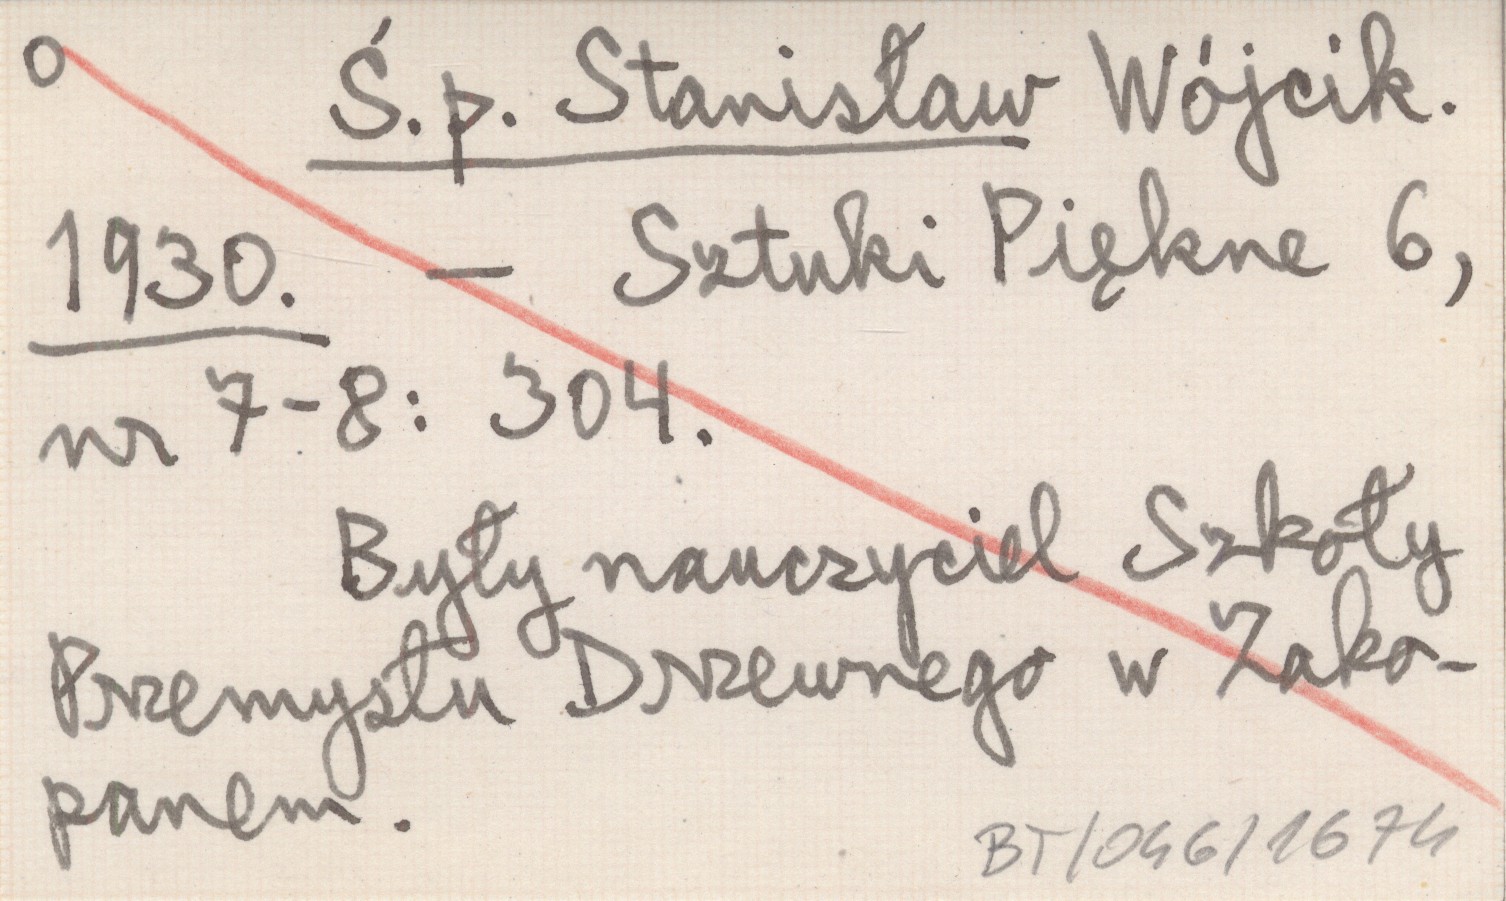 O
Ś.p. Stanisław Wójcik.
1930. — Sztuki Piękne 6,
nr 7-8: 304.
Były nauczyciel Szkoły
Przemysłu Drzewnego w Zako-
panem.
BT/046/1674